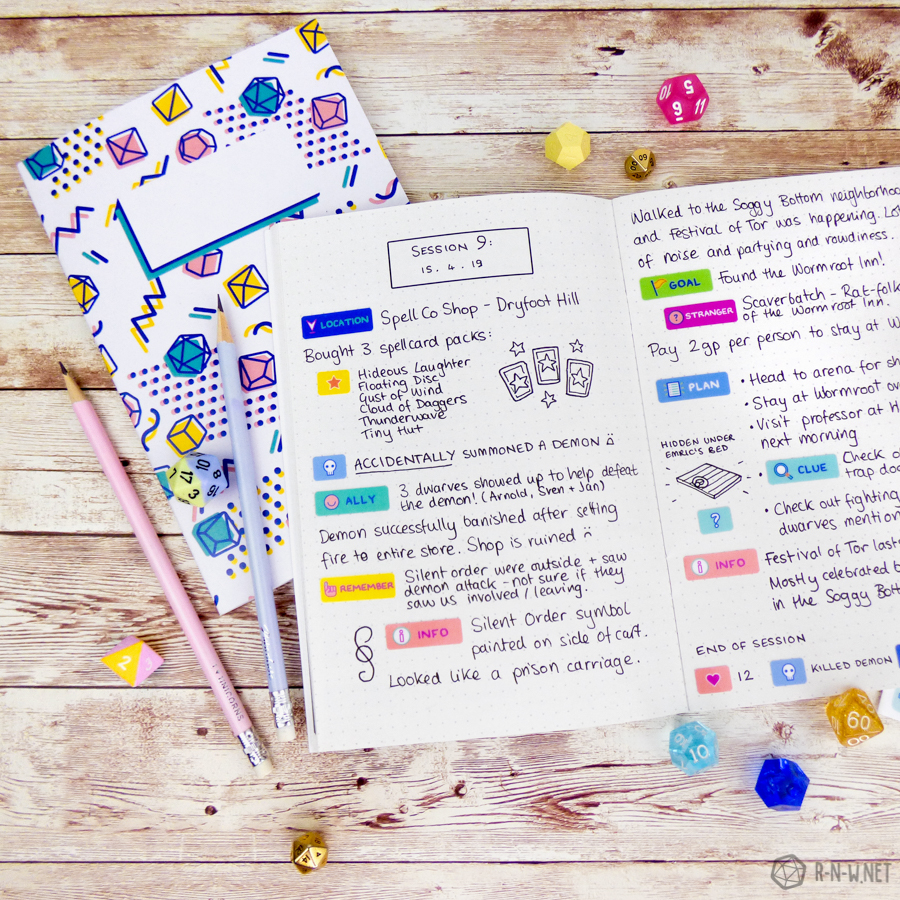 SESSION 9:
15.4.19
LOCATION Spell Co Shop - Dryfoot Hill
Bought 3 spellcard packs:
Hideous Laughter
Floating Disc
Gust of Wind
Cloud of Daggers
Thunderwave
Tiny Hut
ACCIDENTALLY SUMMONED A DEMON
ALLY 3 dwarves showed up to help defeat
the demon! (Arnold, Sven + Jan)
Demon successfully banished after setting
fire to entire store. Shop is ruined
REMEMBER Silent order were outside + saw
demon attack - not sure if they
saw us involved / leaving.
INFO Silent Order symbol
painted on side of cart.
Looked like a prison carriage.
Walked to the Soggy Bottom neighborhoo
and festival of Tor was happening.
of noise and partying and rowdiness.
GOAL Found the Wormroot Inn!
STRANGER Scaverbatch - Rat-folk
of the Wormroot Inn.
Pay 2gp per person to stay at W
PLAN • Head to arena for sh
• Stay at Wormroot ov
• Visit professor at H
next morning
HIDDEN UNDER
EMRIC'S BED
CLUE Check
trap doo
? • Check out fighting
dwarves mention
INFO Festival of Tor last
Mostly celebrated b
in the Soggy Bott
END OF SESSION
12 KILLED DEMON
5
10
6
11
60
17
10
3
16
2
3
UNICORNS
10
60
R-N-W.NET